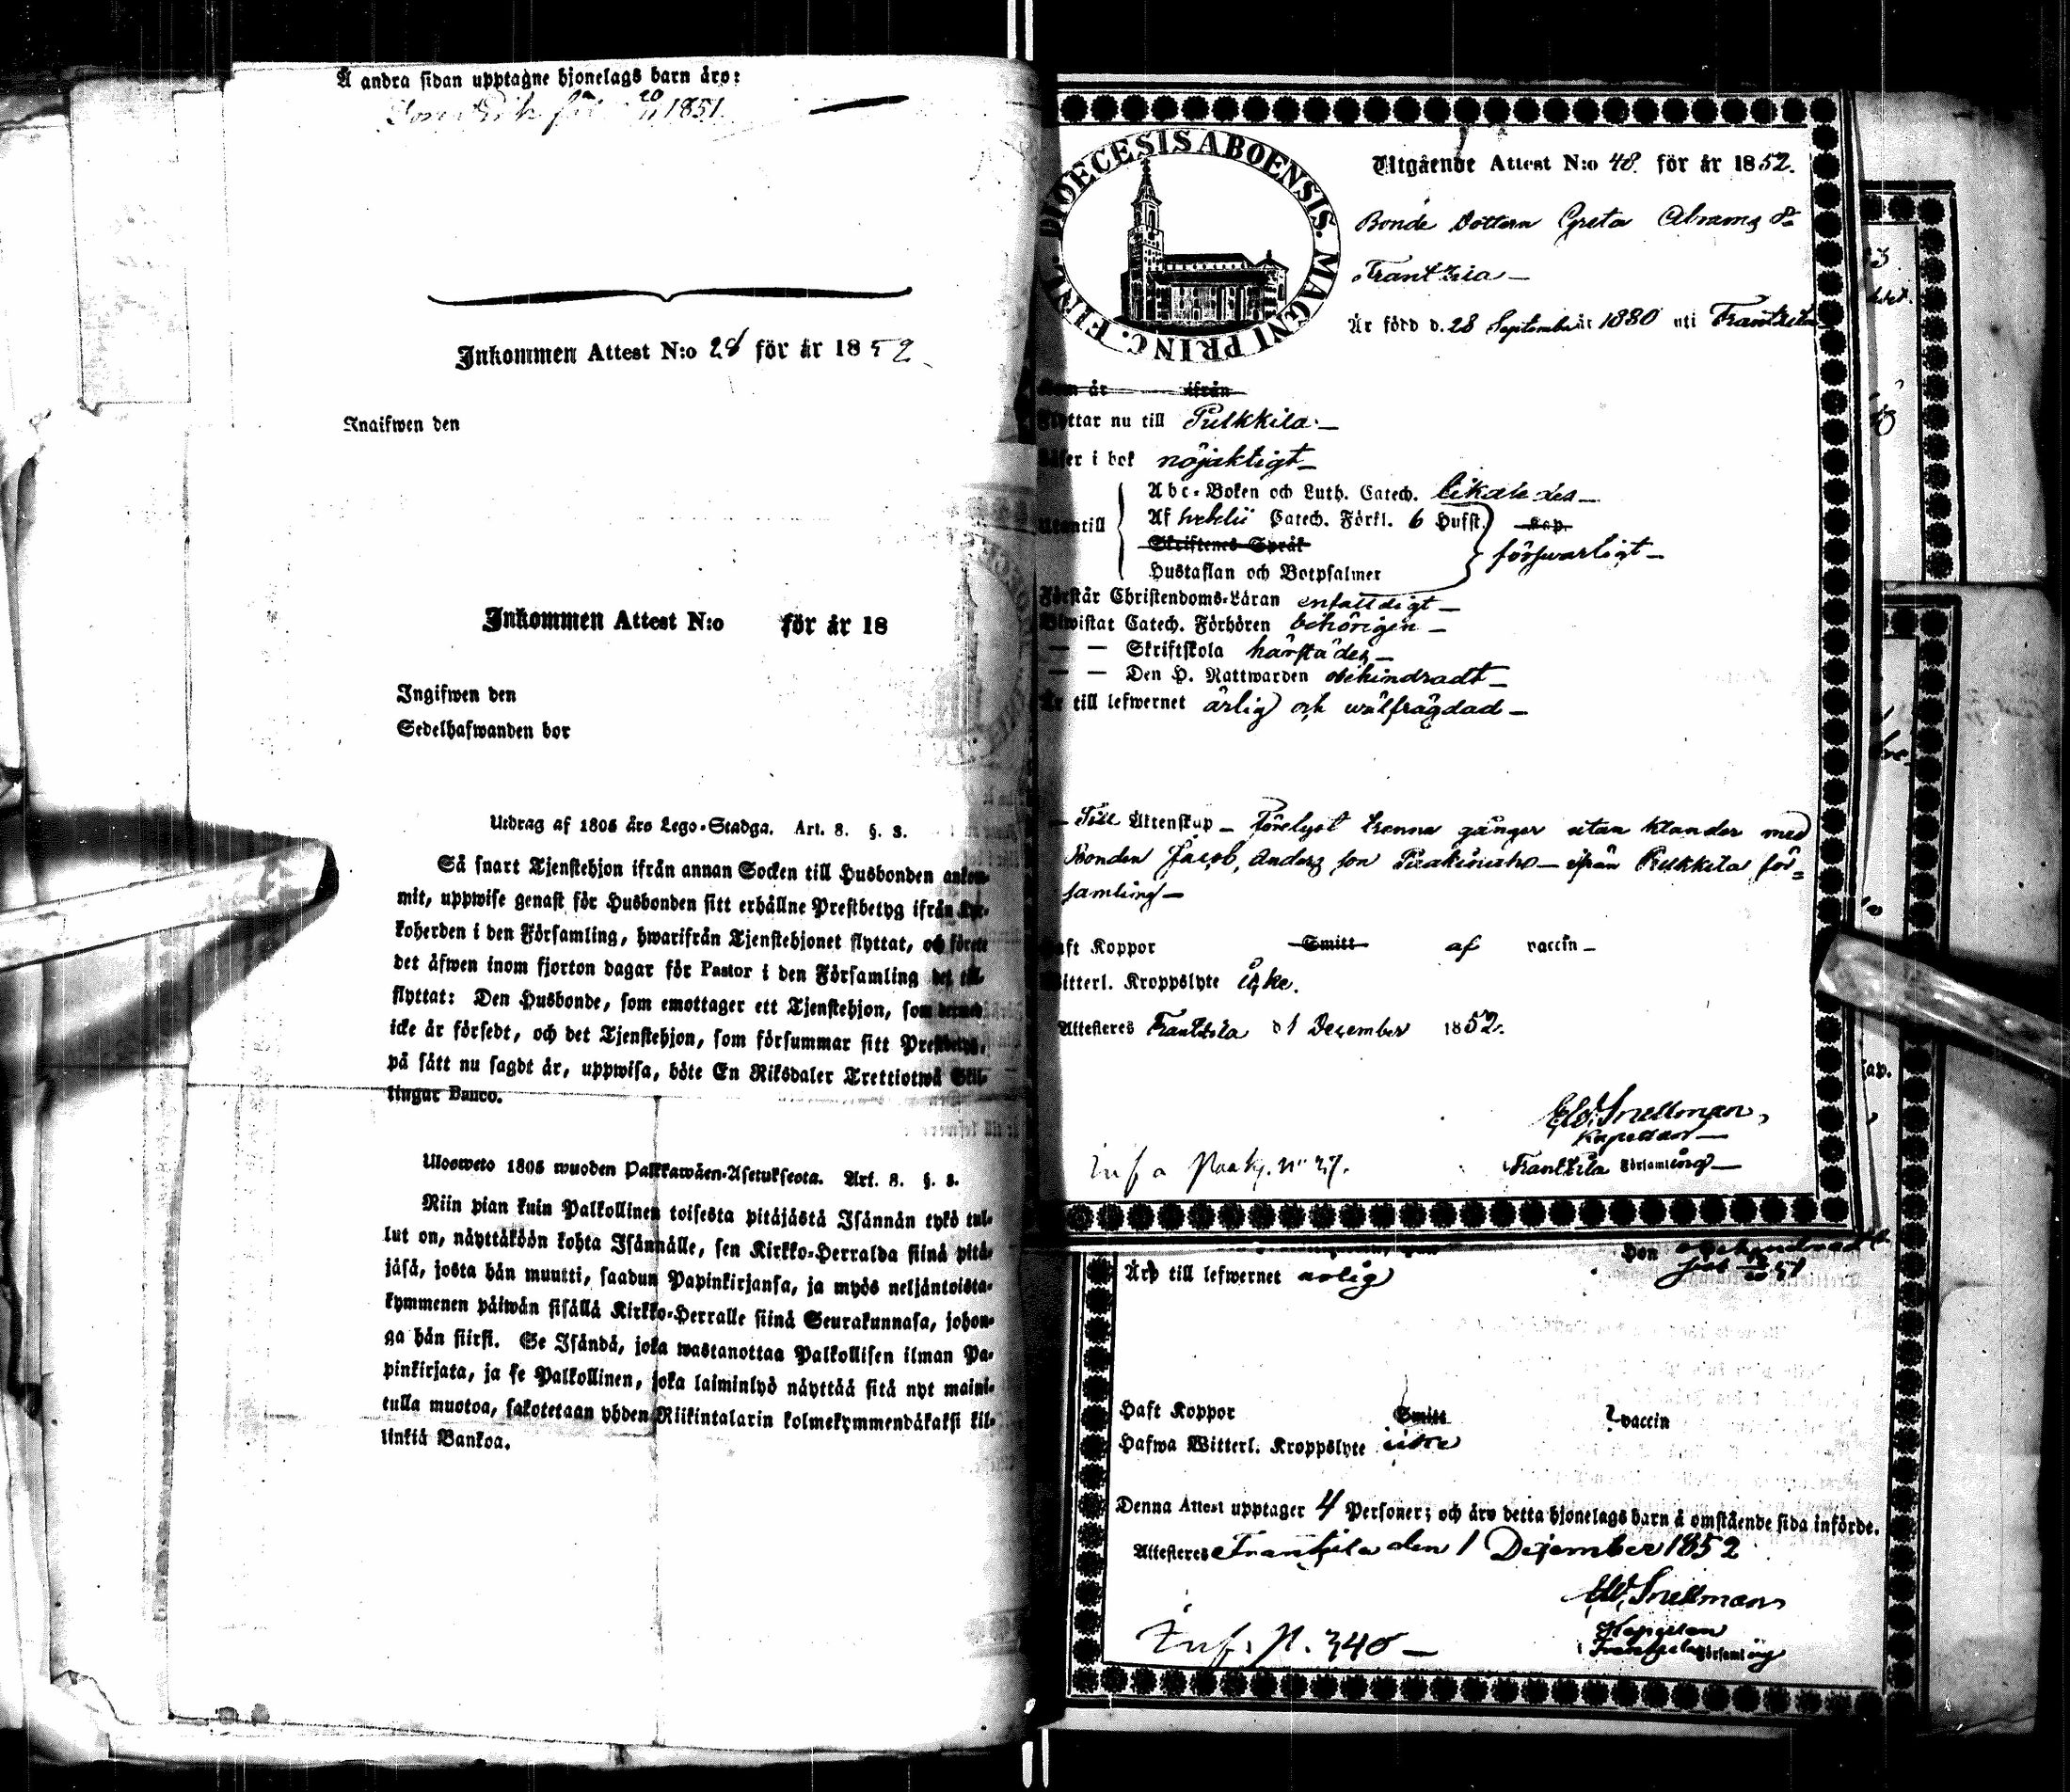 Å andra sidan upptagne hjonelags barn äro:
Son Erik föd 20/11 1851.
Inkommen Attest N:o 28 för år 1852
Ingifwen den
Inkommen Attest N:o för år 18
Ingifwen den
Sedelhafwanden bor
Utdrag af 1805 års Lego-Stadga. Art. 8. §. 3.
Så snart Tjenstehjon ifrån annan Socken till Husbonden ankom-
mit, uppwise genast för Husbonden sitt erhållne Prestbetyg ifrån Kyr-
koherden i den Församling, hwarifrån Tjenstehjonet flyttat, och förete
det äfwen inom fjorton dagar för Pastor i den Församling det till-
flyttat: Den Husbonde, som emottager ett Tjenstehjon, som dermed
icke är försedt, och det Tjenstehjon, som försummar sitt Prestbetyg,
på sätt nu sagdt är, uppwisa, böte En Riksdaler Trettiotwå Skil-
lingar Banco.
Ulosweto 1805 wuoden Palkkawäen-Asetuksesta. Art. 8. §. 3.
Niin pian kuin Palkollinen toisesta pitäjästä Isännän tykö tul-
lut on, näyttäköön kohta Isännälle, sen Kirkko-Herralda siinä pitä-
jäsä, josta hän muutti, saadun Papinkirjansa, ja myös neljäntoista-
kymmenen päiwän sisällä Kirkko-Herralle siinä Seurakunnasa, johon-
ga hän siirsi. Se Isändä, joka wastanottaa Palkollisen ilman Pa-
pinkirjata, ja se Palkollinen, joka laiminlyö näyttää sitä nyt maini-
tulla muotoa, sakotetaan yhden Riikintalarin kolmekymmendäkaksi kil-
linkiä Bankoa.
DIOECESIS ABOENSIS. MAGNI PRINC. FINL.
Utgående Attest N:o 48. för år 1852.
Bonde Dottern Greta Abrams dr
Frantzila —
Är född d. 28 September år 1830 uti Frantzila
Kom år ifrån
Flyttar nu till Pulkkila. —
Läser i bok nöjaktigt —
Abc-Boken och Luth. Catech. likaledes —
Utantill Af Svebelii Catech. Förkl. 6 Hufst. Kap.
Skriftenes Språk
försvarligt —
Hustaflan och Botpsalmer
Förstår Christendoms-Läran enfaldigt —
Bewistat Catech. Förhören behörigen —
— — Skriftskola härstädes —
— — Den H. Nattwarden obehindradt —
Är till lefwernet ärlig och wälfrägdad —
— Till Äktenskap — Förelyst trenne gånger utan klander med
Bonden Jacob Anders son — ifrån Pulkkila för=
samling —
Haft Koppor Smitt af vaccin —
Witterl. Kroppslyte icke.
Attesteres Frantzila d 1 December 1852.
Snellman,
Kapellan —
Frantzila Församling —
Äro till lefwernet ärlig
Haft Koppor Smitt vaccin
Hafwa Witterl. Kroppslyte icke
Denna Attest upptager 4 Personer; och äro detta hjonelags barn å omstående sida införde.
Attesteres Frantzila den 1 December 1852
Snellman
Kapellan
Frantzila Församling
Inf. p. 340 —